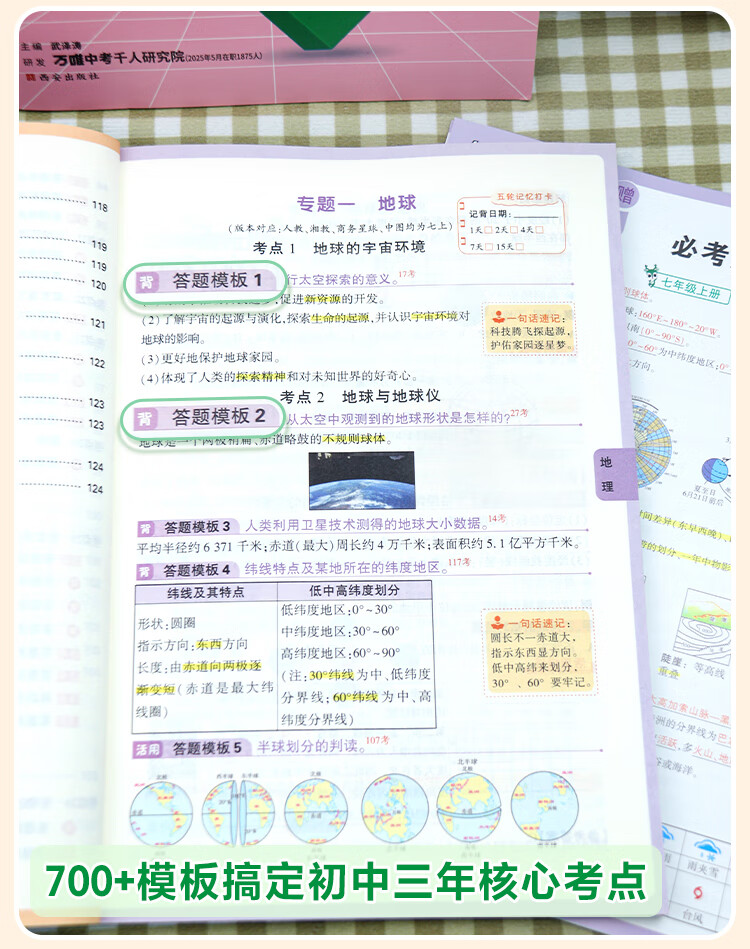 主编 武泽涛
研发 万唯中考千人研究院(2025年5月在职1875人)
西安出版社
118
119
119
120
121
122
123
123
124
124
专题一 地球
(版本对应:人教、湘教、商务星球、中图均为七上)
五轮记忆打卡
记背日期:
1天□ 2天□ 4天□
7天□ 15天□
考点1 地球的宇宙环境
背 答题模板1
行太空探索的意义。17考
促进新资源的开发。
(2)了解宇宙的起源与演化,探索生命的起源,并认识宇宙环境对
地球的影响。
(3)更好地保护地球家园。
(4)体现了人类的探索精神和对未知世界的好奇心。
一句话速记:
科技腾飞探起源,
护佑家园逐星梦。
考点2 地球与地球仪
背 答题模板2
从太空中观测到的地球形状是怎样的?27考
地球是一个两极稍扁、赤道略鼓的不规则球体。
背 答题模板3 人类利用卫星技术测得的地球大小数据。14考
平均半径约6 371千米;赤道(最大)周长约4万千米;表面积约5.1亿平方千米。
背 答题模板4 纬线特点及某地所在的纬度地区。117考
纬线及其特点
低中高纬度划分
形状:圆圈
指示方向:东西方向
长度:由赤道向两极逐
渐变短(赤道是最大纬
线圈)
低纬度地区:0°~30°
中纬度地区:30°~60°
高纬度地区:60°~90°
(注:30°纬线为中、低纬度
分界线;60°纬线为中、高
纬度分界线)
一句话速记:
圆长不一赤道大,
指示东西显方向。
低中高纬来划分,
30°、60°要牢记。
活用 答题模板5 半球划分的判读。107考
北极
西半球 东半球
北极
北半球
北极
地理
赠
必考
七年级上册
球体。
160°E-180°-20°W。
南[0°-90°S]。
0°-60°为中纬度地区;0°
方向。
夏至日
6月21日前后
时间差异(东早西晚)、
的划分、一年中物影
陡崖:等高线
重叠
大高加索山脉—黑
洲的分界线为巴
活跃,多火山、地
或海洋。
雨夹雪
台风
700+模板搞定初中三年核心考点